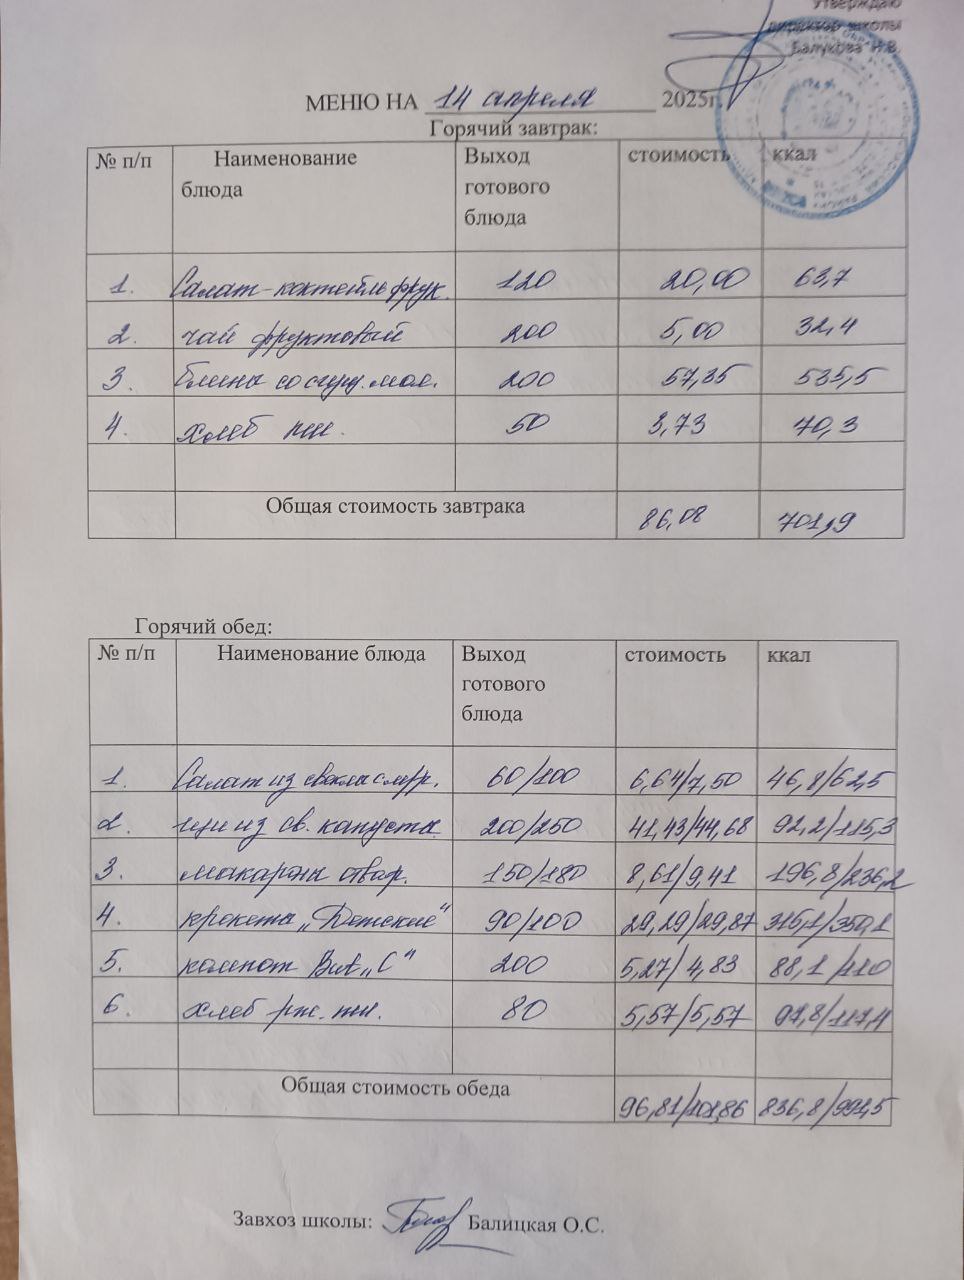 Утверждаю
директор школы
Балукова Н.В.
МЕНЮ НА 14 апреля 2025г.
Горячий завтрак:
№ п/п Наименование блюда Выход готового блюда стоимость ккал
1. Салат-коктейль фрук. 120 20,00 63,7
2. чай фруктовый 200 5,00 32,4
3. блины со сгущ. мол. 200 57,35 535,5
4. хлеб пш. 50 3,73 70,3
Общая стоимость завтрака 86,08 701,9
Горячий обед:
№ п/п Наименование блюда Выход готового блюда стоимость ккал
1. Салат из свеклы с мор. 60/100 6,64/7,50 46,8/62,5
2. щи из св. капусты 200/250 41,43/44,68 92,2/115,3
3. макароны отвар. 150/180 8,61/9,41 196,8/236,2
4. крокеты „Детские" 90/100 29,29/29,87 315,1/350,1
5. компот Вит „С" 200 5,27/4,83 88,1/110
6. хлеб рж. пш. 80 5,57/5,57 97,8/117,4
Общая стоимость обеда 96,81/101,86 836,8/991,5
Завхоз школы: Балицкая О.С.